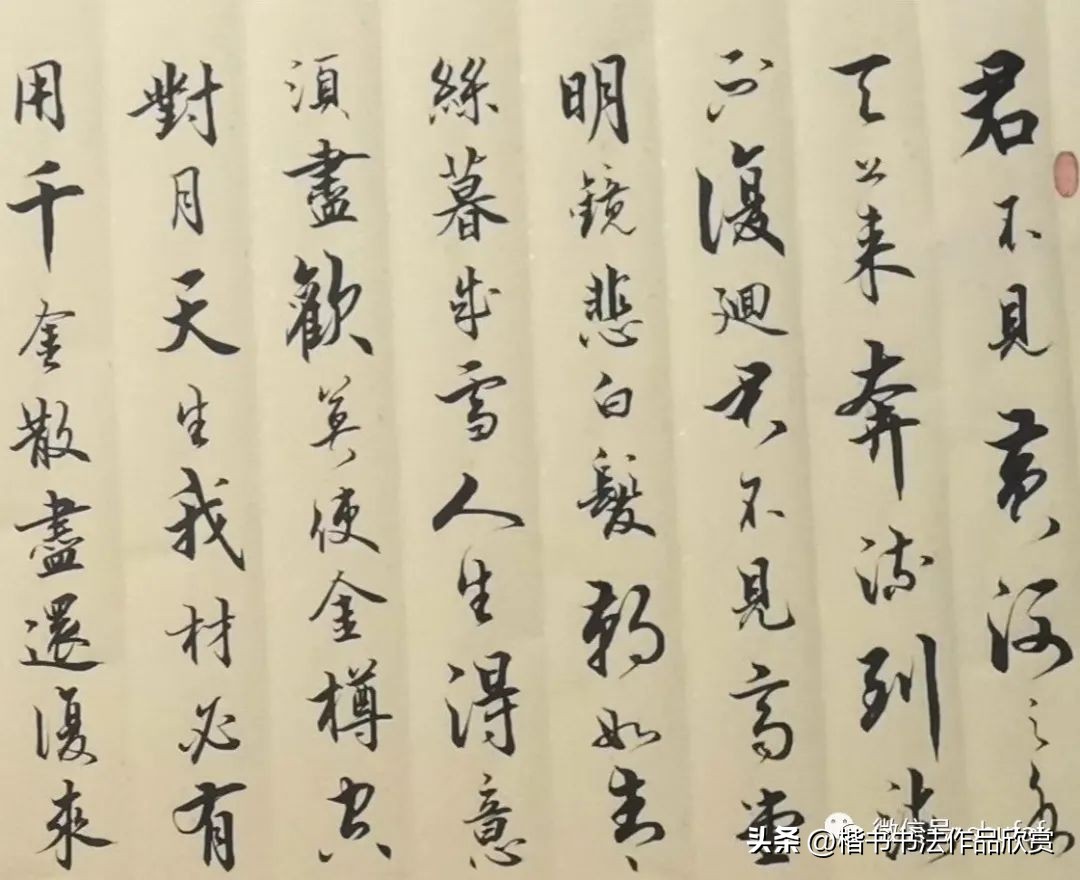 君不見黄河之水
天上来奔流到海
不復迴君不見高堂
明鏡悲白髮朝如青
絲暮成雪人生得意
須盡歡莫使金樽空
對月天生我材必有
用千金散盡還復來
微信号
头条 @楷书书法作品欣赏